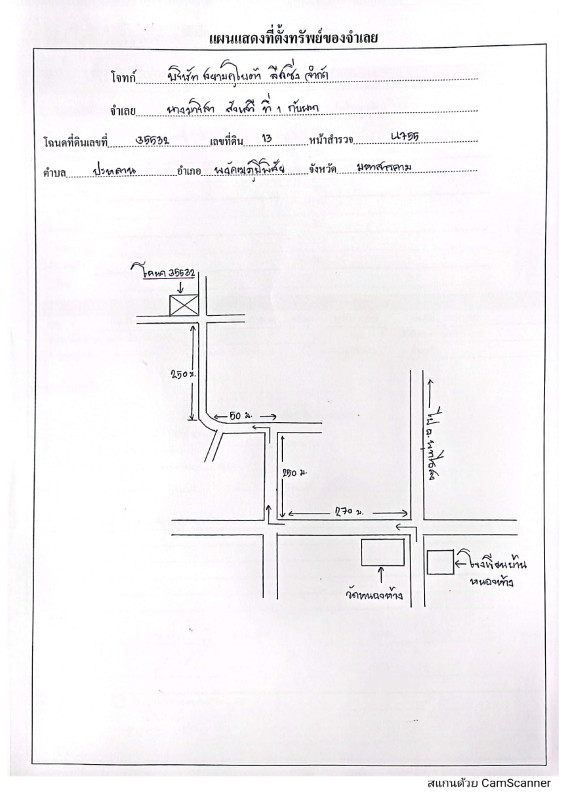 แผนแสดงที่ตั้งทรัพย์ของจำเลย
โจทก์ บริษัท สยามคูโบต้า ลีสซิ่ง จำกัด
จำเลย ที่ 1 กับพวก
โฉนดที่ดินเลขที่ 35532 เลขที่ดิน 13 หน้าสำรวจ 4755
ตำบล ปะหลาน อำเภอ พยัคฆภูมิพิสัย จังหวัด มหาสารคาม
โฉนด 35532
250 ม.
50 ม.
250 ม.
270 ม.
ไป อ.
วัดหนองห้าง
โรงเรียนบ้าน
หนองห้าง
สแกนด้วย CamScanner